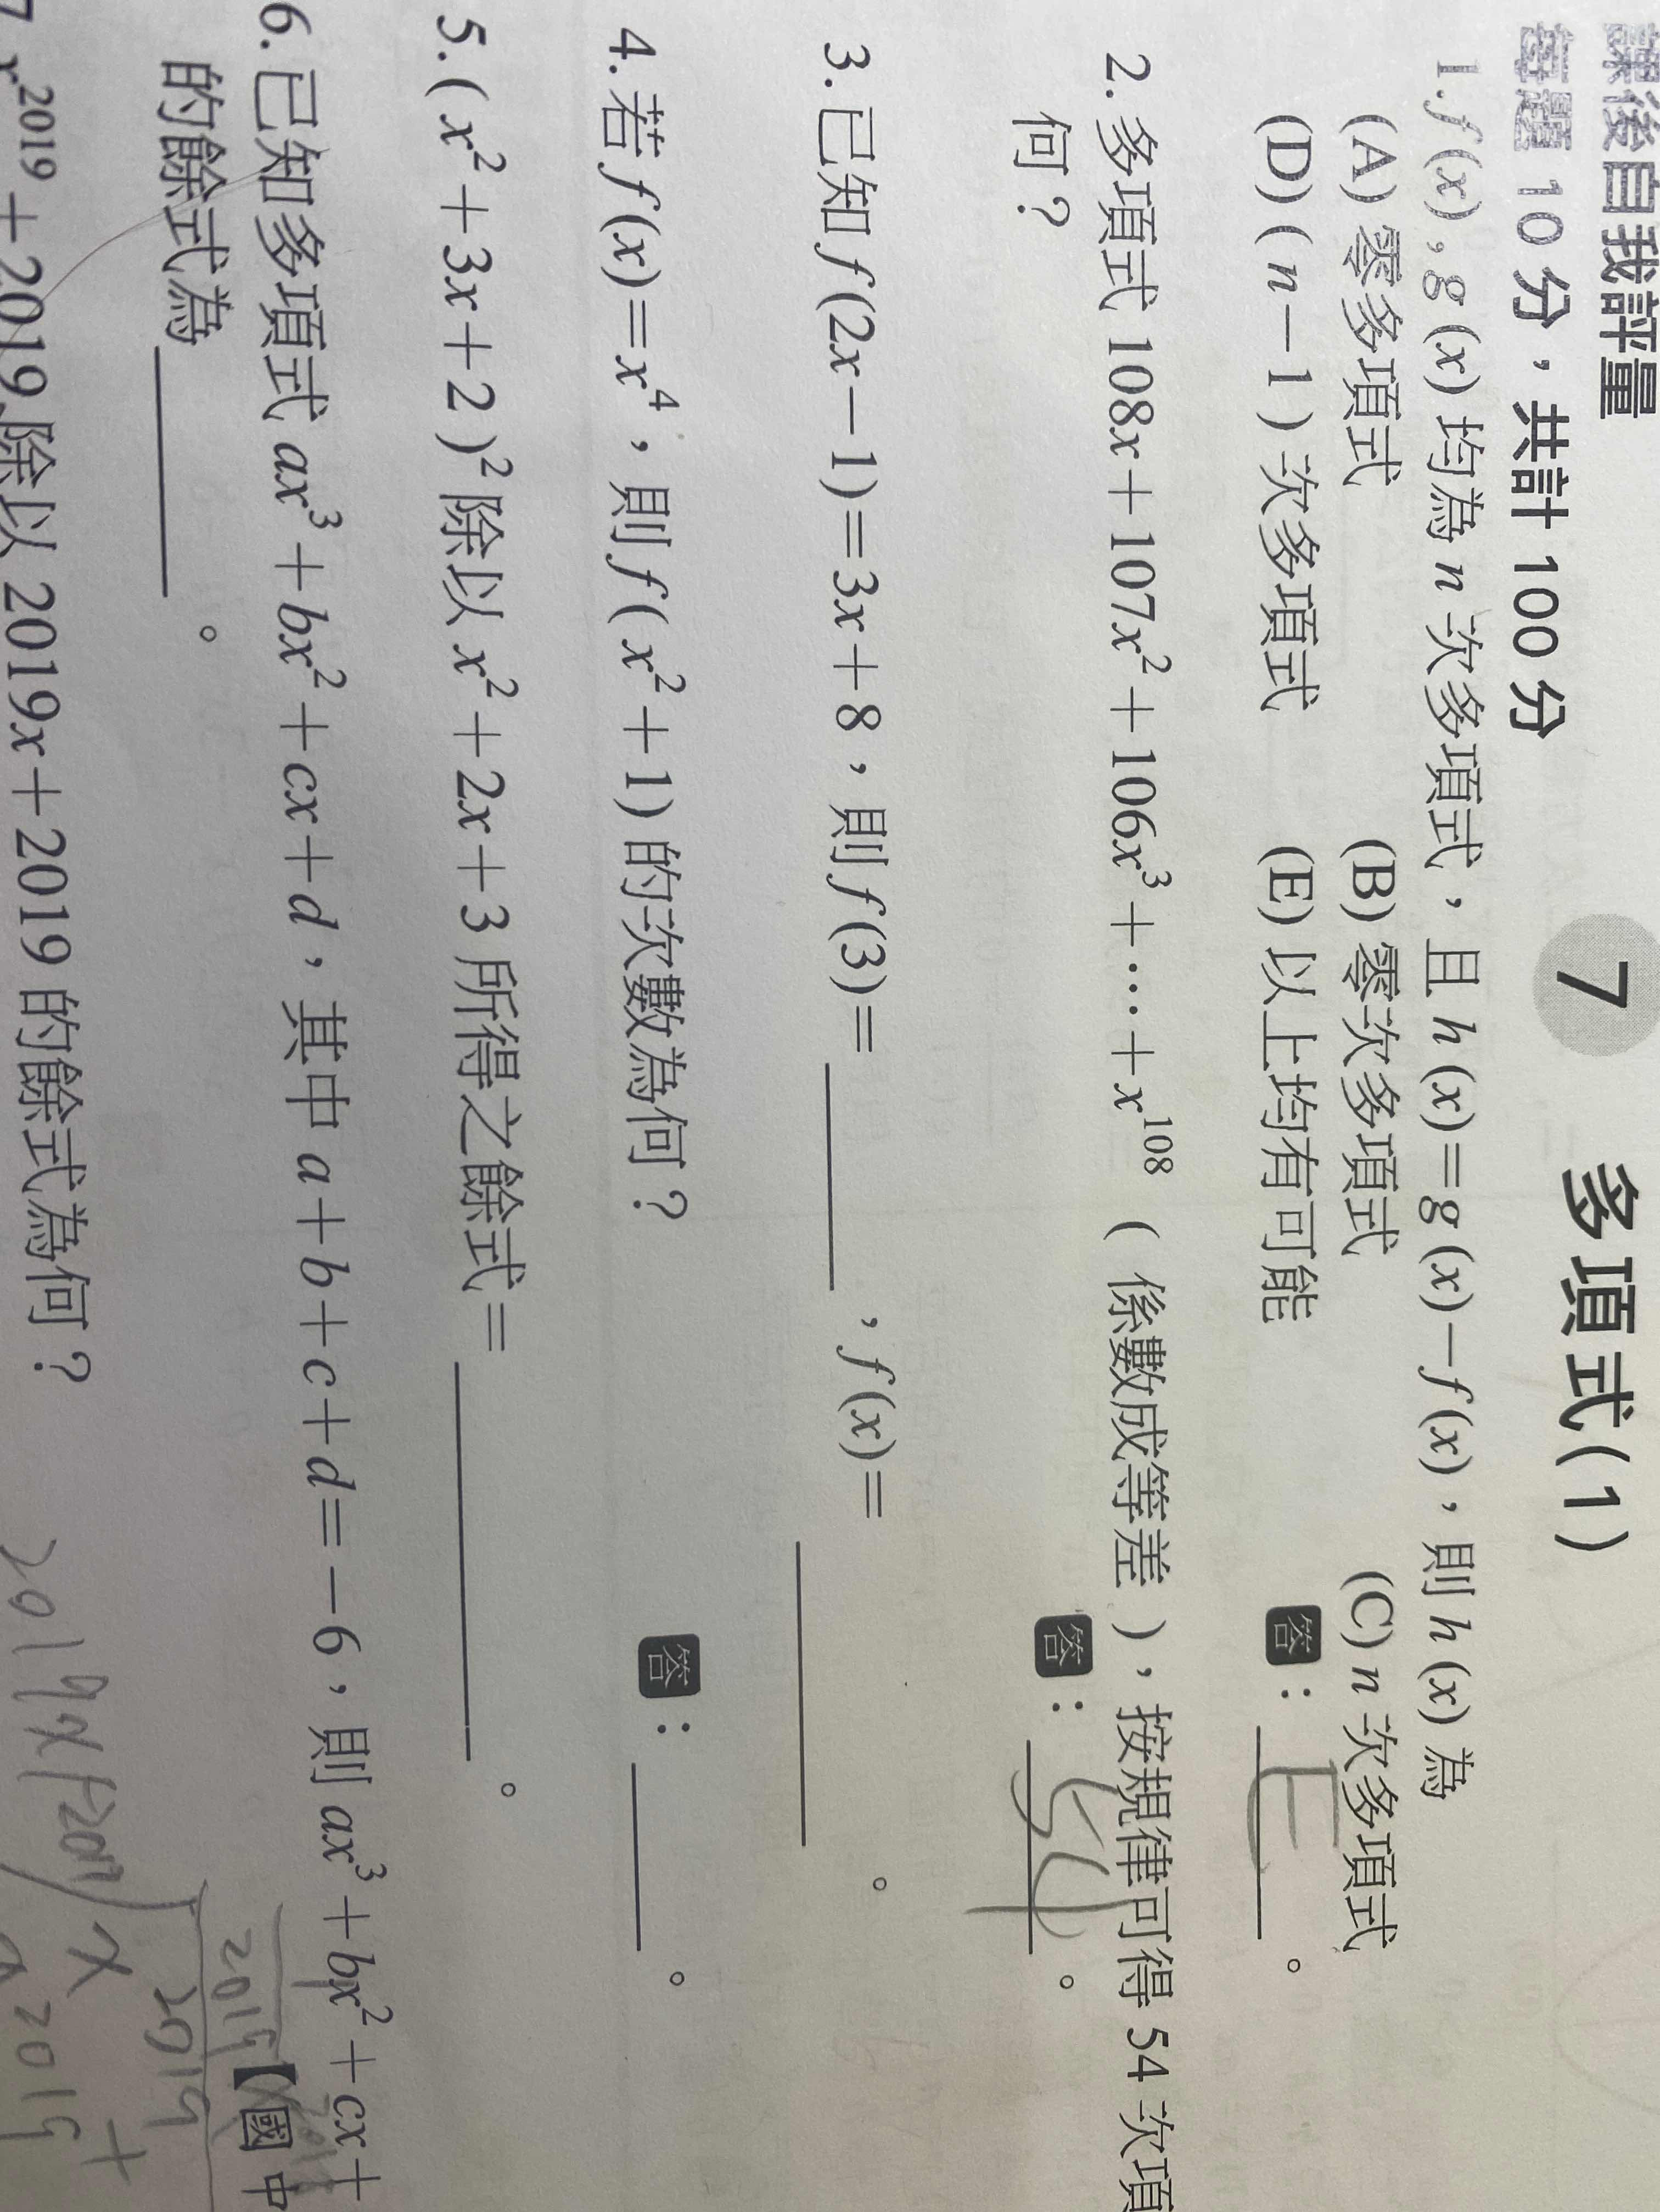 課後自我評量
每題 10 分，共計 100 分
7 多項式(1)
1. f(x), g(x) 均為 n 次多項式，且 h(x)=g(x)-f(x)，則 h(x) 為
(A) 零多項式 (B) 零次多項式 (C) n 次多項式
(D) (n-1) 次多項式 (E) 以上均有可能
答：E。
2. 多項式 108x+107x²+106x³+…+x¹⁰⁸（係數成等差），按規律可得 54 次項
何？
答：54。
3. 已知 f(2x-1)=3x+8，則 f(3)=＿＿＿，f(x)=＿＿＿。
4. 若 f(x)=x⁴，則 f(x²+1) 的次數為何？
答：＿＿＿。
5. (x²+3x+2)² 除以 x²+2x+3 所得之餘式=＿＿＿。
6. 已知多項式 ax³+bx²+cx+d，其中 a+b+c+d=-6，則 ax³+bx²+cx+
的餘式為＿＿＿。
【國中
7. x²⁰¹⁹+2019 除以 2019x+2019 的餘式為何？
2019x+2019